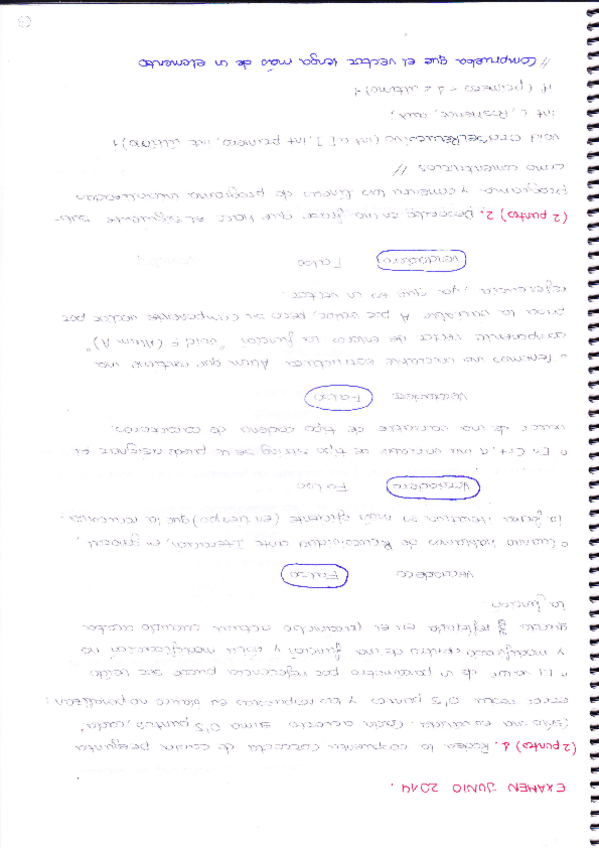 EXAMEN JUNIO 2014.
(2 puntos) 1. Rodea la respuesta correcta de cada pregunta
(sólo una es válida. Cada acierto suma 0'5 puntos, cada
error resta 0'5 puntos y las respuestas en blanco no penalizan:
• El valor de un parámetro por referencia puede ser leído
y modificado dentro de una función y dicha modificación no
queda reflejada en el parámetro actual cuando acaba
la función.
Verdadero Falso
• Cuando hablamos de Recursividad ante Iteración, en general,
la forma iterativa es más eficiente (en tiempo) que la recursiva.
Verdadero Falso
• En C++, a una variable de tipo string se le puede asignar el
valor de una variable de tipo cadena de caracteres.
Verdadero Falso
• Tenemos una variable estructura Alum que contiene una
componente vector de enteros la función "void F (Alum A)"
pasa la variable A por valor, pero su componente vector por
referencia, ya que es un vector.
Verdadero Falso
(2 puntos) 2. Describe en una frase que hace el siguiente sub-
programa y comenta las líneas de programa
como comentarios //
void (int v[], int primero, int último){
int i, aux;
if (primero < último){
// Comprueba que el vector tenga más de un elemento